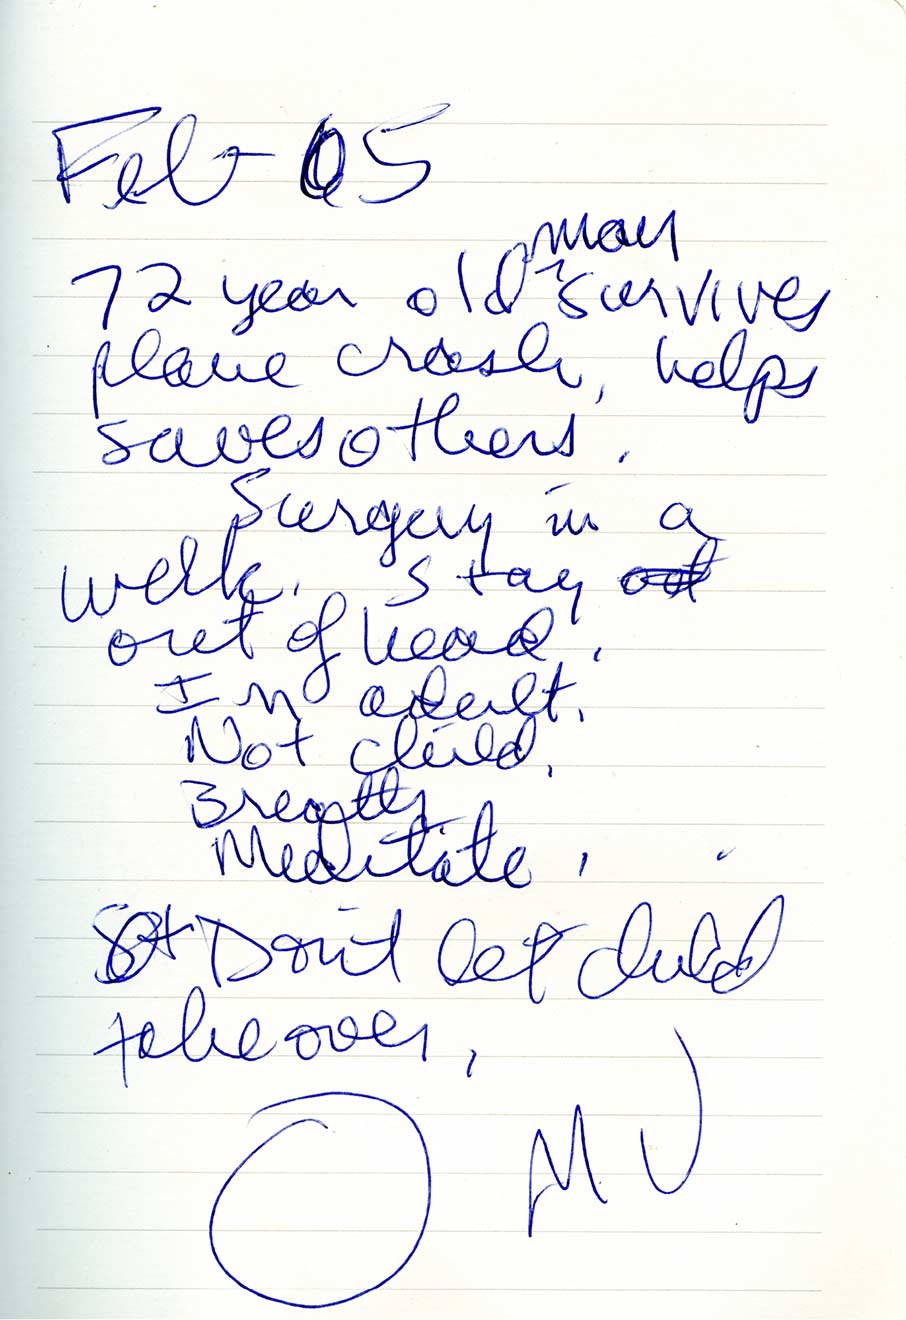 Feb 05
72 year old man survives
plane crash, helps
saves others.
Surgery in a
week. Stay
out of head.
Im adult.
Not child.
Breath
Meditate.
Don't let child
take over.
MJ